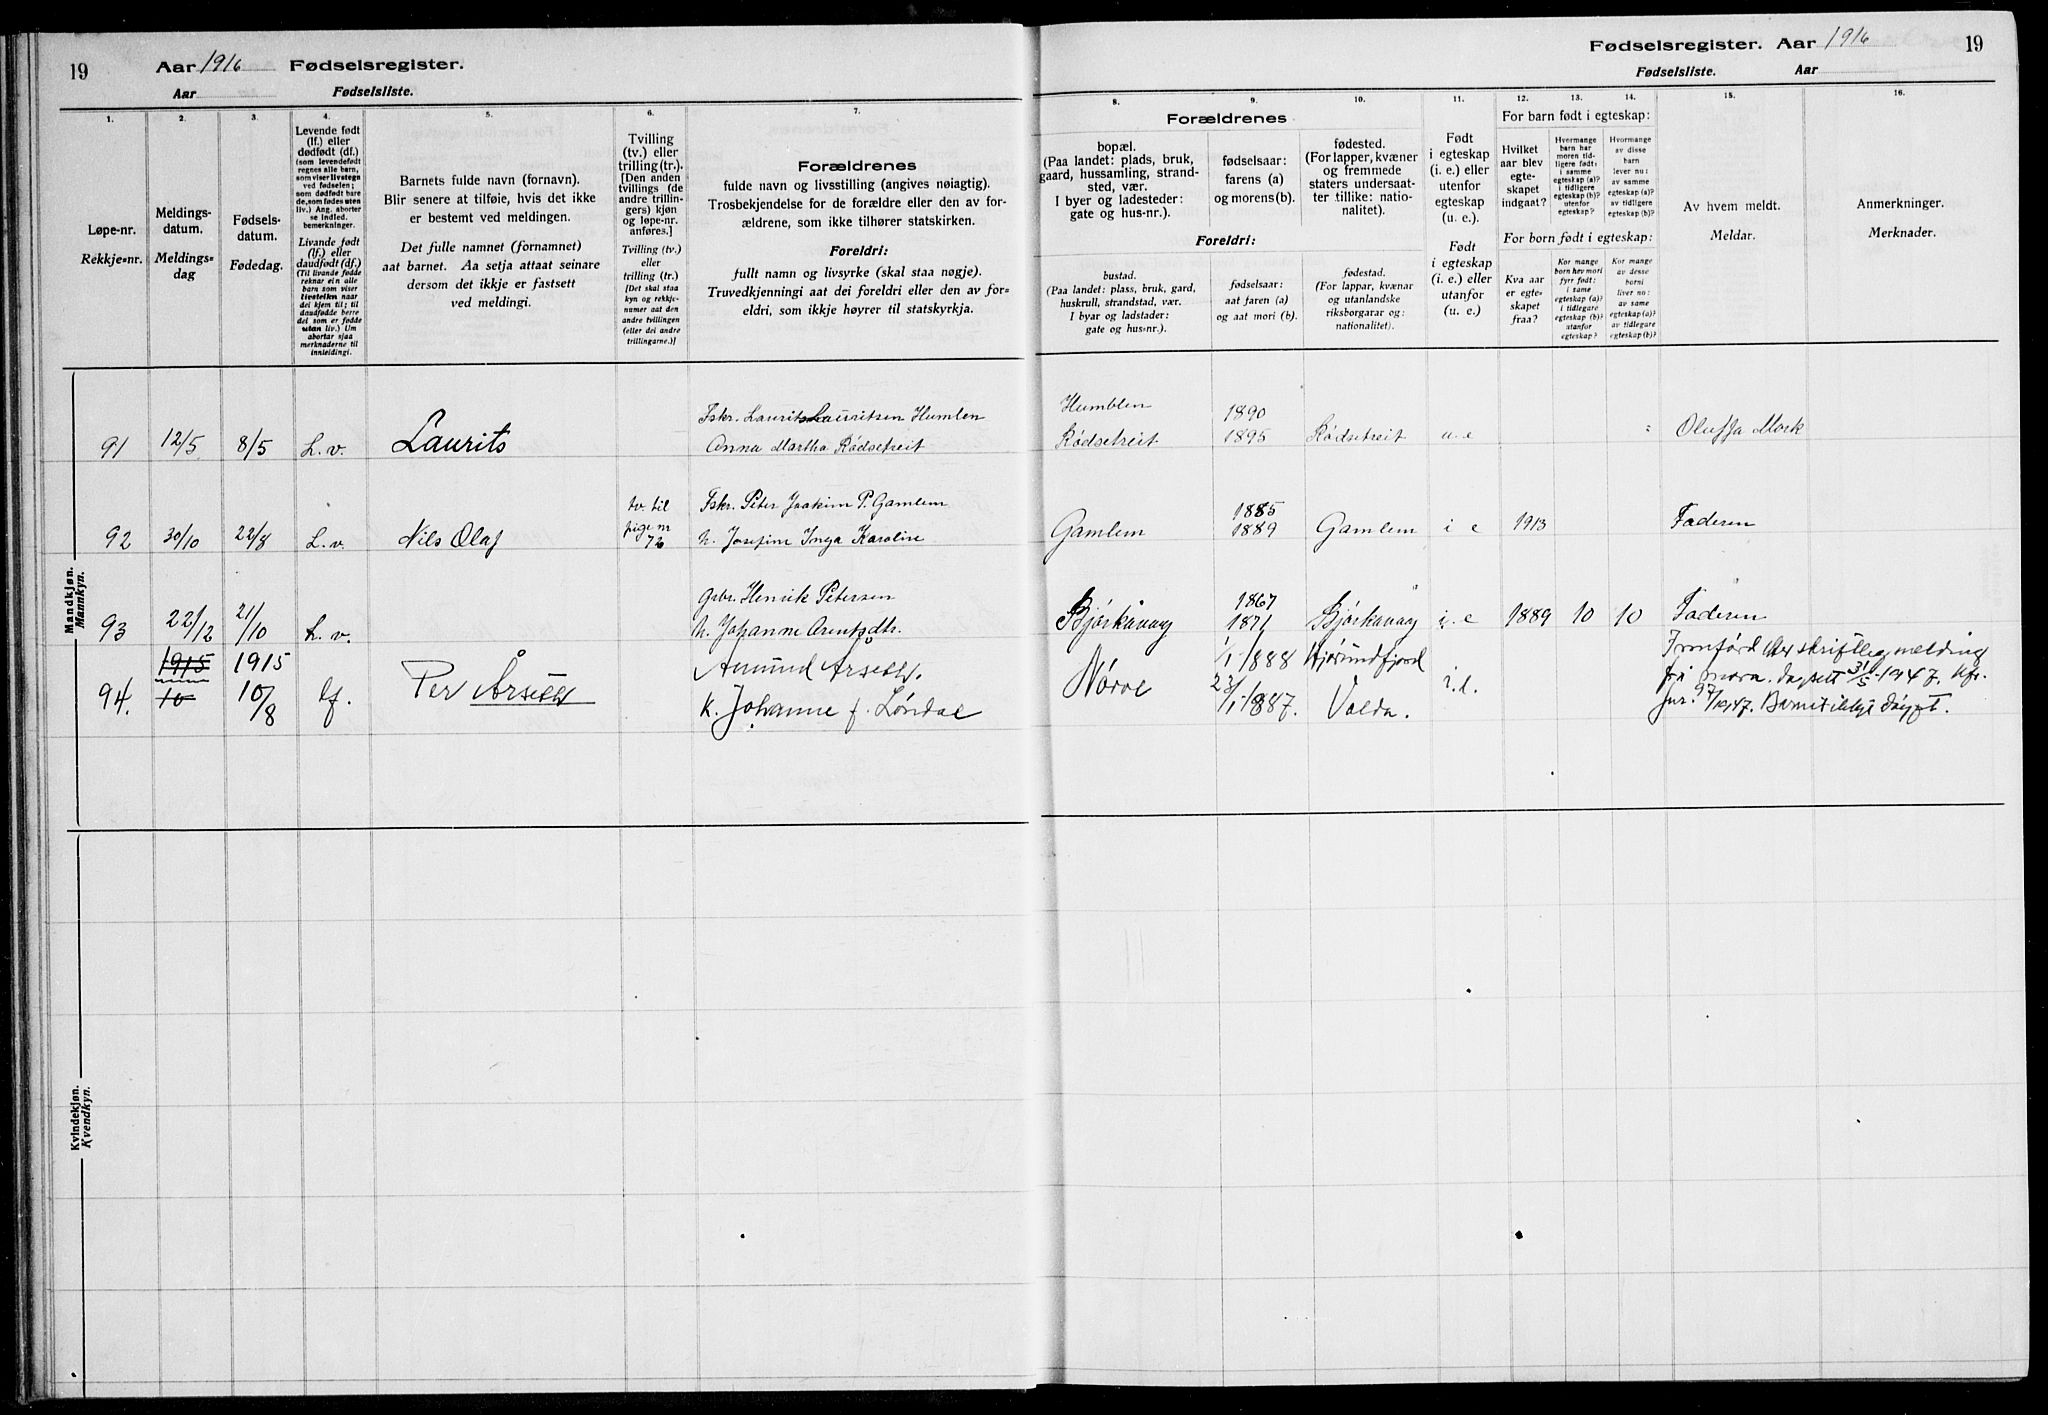 19
Aar 1916 Fødselsregister.
Aar Fødselsliste.
Fødselsregister. Aar 1916 19
Fødselsliste. Aar
1.
Løpe-nr.
Rekkje-nr.
2.
Meldings-
datum.
Meldings-
dag
3.
Fødsels-
datum.
Fødedag.
4.
Levende født
(lf.) eller
dødfødt (df.)
(som levendefødt
regnes alle barn,
som viser livstegn
ved fødselen;
som dødfødt bare
de, som fødes uten
liv.) Ang. aborter
se indled.
bemerkninger.
Livande født
(lf.) eller
daudfødt (df.)
(Til livande fødde
reknar ein alle
barn som viser
livsteikn naar
dei kjem til; til
daudfødde berre
dei som er fødde
utan liv.) Um
abortar sjaa
merknaderne til
innleidingi.
5.
Barnets fulde navn (fornavn).
Blir senere at tilføie, hvis det ikke
er bestemt ved meldingen.
Det fulle namnet (fornamnet)
aat barnet. Aa setja attaat seinare
dersom det ikkje er fastsett
ved meldingi.
6.
Tvilling
(tv.) eller
trilling (tr.).
[Den anden
tvillings (de
andre trillin-
gers) kjøn
og løpe-nr.
anføres.]
Tvilling (tv.)
eller
trilling (tr.)
[Det skal staa
kyn og rekkje-
numer aat den
andre tvillingen
(eller dei andre
trillingarne.)]
7.
Forældrenes
fulde navn og livsstilling (angives nøiagtig).
Trosbekjendelse for de forældre eller den av for-
ældrene, som ikke tilhører statskirken.
Foreldri:
fullt namn og livsyrke (skal staa nøgje).
Truvedkjenningi aat dei foreldri eller den av for-
eldri, som ikkje høyrer til statskyrkja.
Forældrenes
8.
bopæl.
(Paa landet: plads, bruk,
gaard, hussamling, strand-
sted, vær.
I byer og ladesteder:
gate og hus-nr.).
9.
fødselsaar:
farens (a)
og morens (b).
10.
fødested.
(For lapper, kvæner
og fremmede
staters undersaat-
ter tillike: natio-
nalitet).
Foreldri:
bustad.
(Paa landet: plass, bruk, gard,
huskrull, strandstad, vær.
I byar og ladstader:
gate og hus-nr.).
fødselsaar:
aat faren (a)
og aat mori (b).
fødestad.
(For lappar, kvænar
og utanlandske
riksborgarar og:
nationalitet).
11.
Født
i egteskap
(i. e.) eller
utenfor
egteskap
(u. e.).
Født
i egteskap
(i. e.) eller
utanfor
(u. e.).
12. 13. 14.
For barn født i egteskap:
Hvilket
aar blev
egte-
skapet
indgaat?
Hvormange
barn har
moren tid-
ligere født:
i samme
egteskap (a)?
i tidligere
egteskap (b)?
utenfor
egteskap?
Hvormange
av disse
barn
lever nu:
av samme
egteskap (a)?
av tidligere
egteskap (b)?
For born født i egteskap:
Kva aar
er egte-
skapet
fraa?
Kor mange
born hev mori
fyrr født:
i same
egteskap (a)?
i tidlegare
egteskap (b)?
utanfor
egteskap?
Kor mange
av desse
borni
liver no:
av same
egteskap (a)?
av tidlegare
egteskap (b)?
15.
Av hvem meldt.
Meldar.
16.
Anmerkninger.
Merknader.
Mandkjøn.
Mannkyn.
Fskr. Laurits Lauritsen Humlen Humblen 1890
91 12/5 8/5 L. v. Laurits Anna Martha Rødsetreit Rødsetreit 1895 Rødsetreit u. e Oluffa Mork
tv. til Fskr. Peter Joakim P. Gamlem 1885
92 30/10 22/8 L. v. Nils Olaf pige nr 72 h. Josefine Inga Karoline Gamlem 1889 Gamlem i e 1913 Faderen
Gbr. Henrik Petersen 1867
93 22/12 21/10 L. v. h. Johanne Arentsdtr. Bjørkavaag 1871 Bjørkavaag i. e 1889 10 10 Faderen
1915 1915 Amund Årseth. 1/1-1888 Hjørundfjord Innførd etter skriftleg melding
94. 10 10/8 lf. Per Årseth Nørve i. e. frå mora. dagsett 31/5-1947. Kfr.
k. Johanne f. Løndal 23/1-1887. Volda. jnr. 97/1947. Barnet ikkje døypt.
Kvindekjøn.
Kvendkyn.